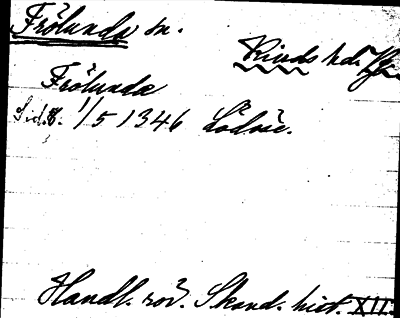 Frölunda sn. Kinds hd. Vg.
Frölunda
Sid. 8. 1/5 1346 Lödöse.
Handl. rör. Skand. hist. XII.